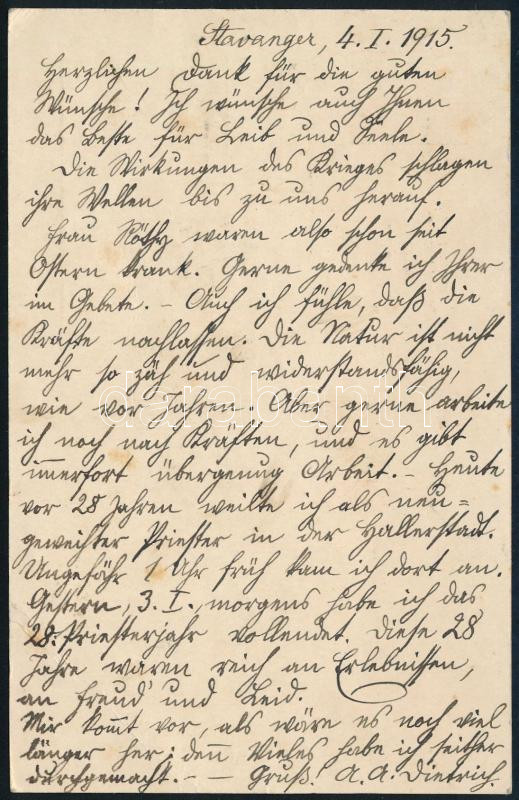 Stavanger, 4. I. 1915.
Herzlichen Dank für die guten
Wünsche! Ich wünsche auch Ihnen
das Beste für Leib und Seele.
Die Wirkungen des Krieges schlagen
ihre Wellen bis zu uns herauf.
Frau waren also schon seit
Ostern krank. Gerne gedenke ich Ihrer
im Gebete. – Auch ich fühle, daß die
Kräfte nachlassen. Die Natur ist nicht
mehr so zäh und widerstandsfähig,
wie vor Jahren. Aber gerne arbeite
ich noch nach Kräften, und es gibt
immerfort übergenug Arbeit. – Heute
vor 28 Jahren weilte ich als neu=
geweihter Priester in der Hallerstadt.
Ungefähr 1 Uhr früh kam ich dort an.
Gestern, 3. I., morgens habe ich das
28. Priesterjahr vollendet. Diese 28
Jahre waren reich an Erlebnissen,
an Freud' und Leid.
Mir kommt vor, als wäre es noch viel
länger her; denn Vieles habe ich seither
durchgemacht. – – Gruß! A. A. Dietrich.
darabanth